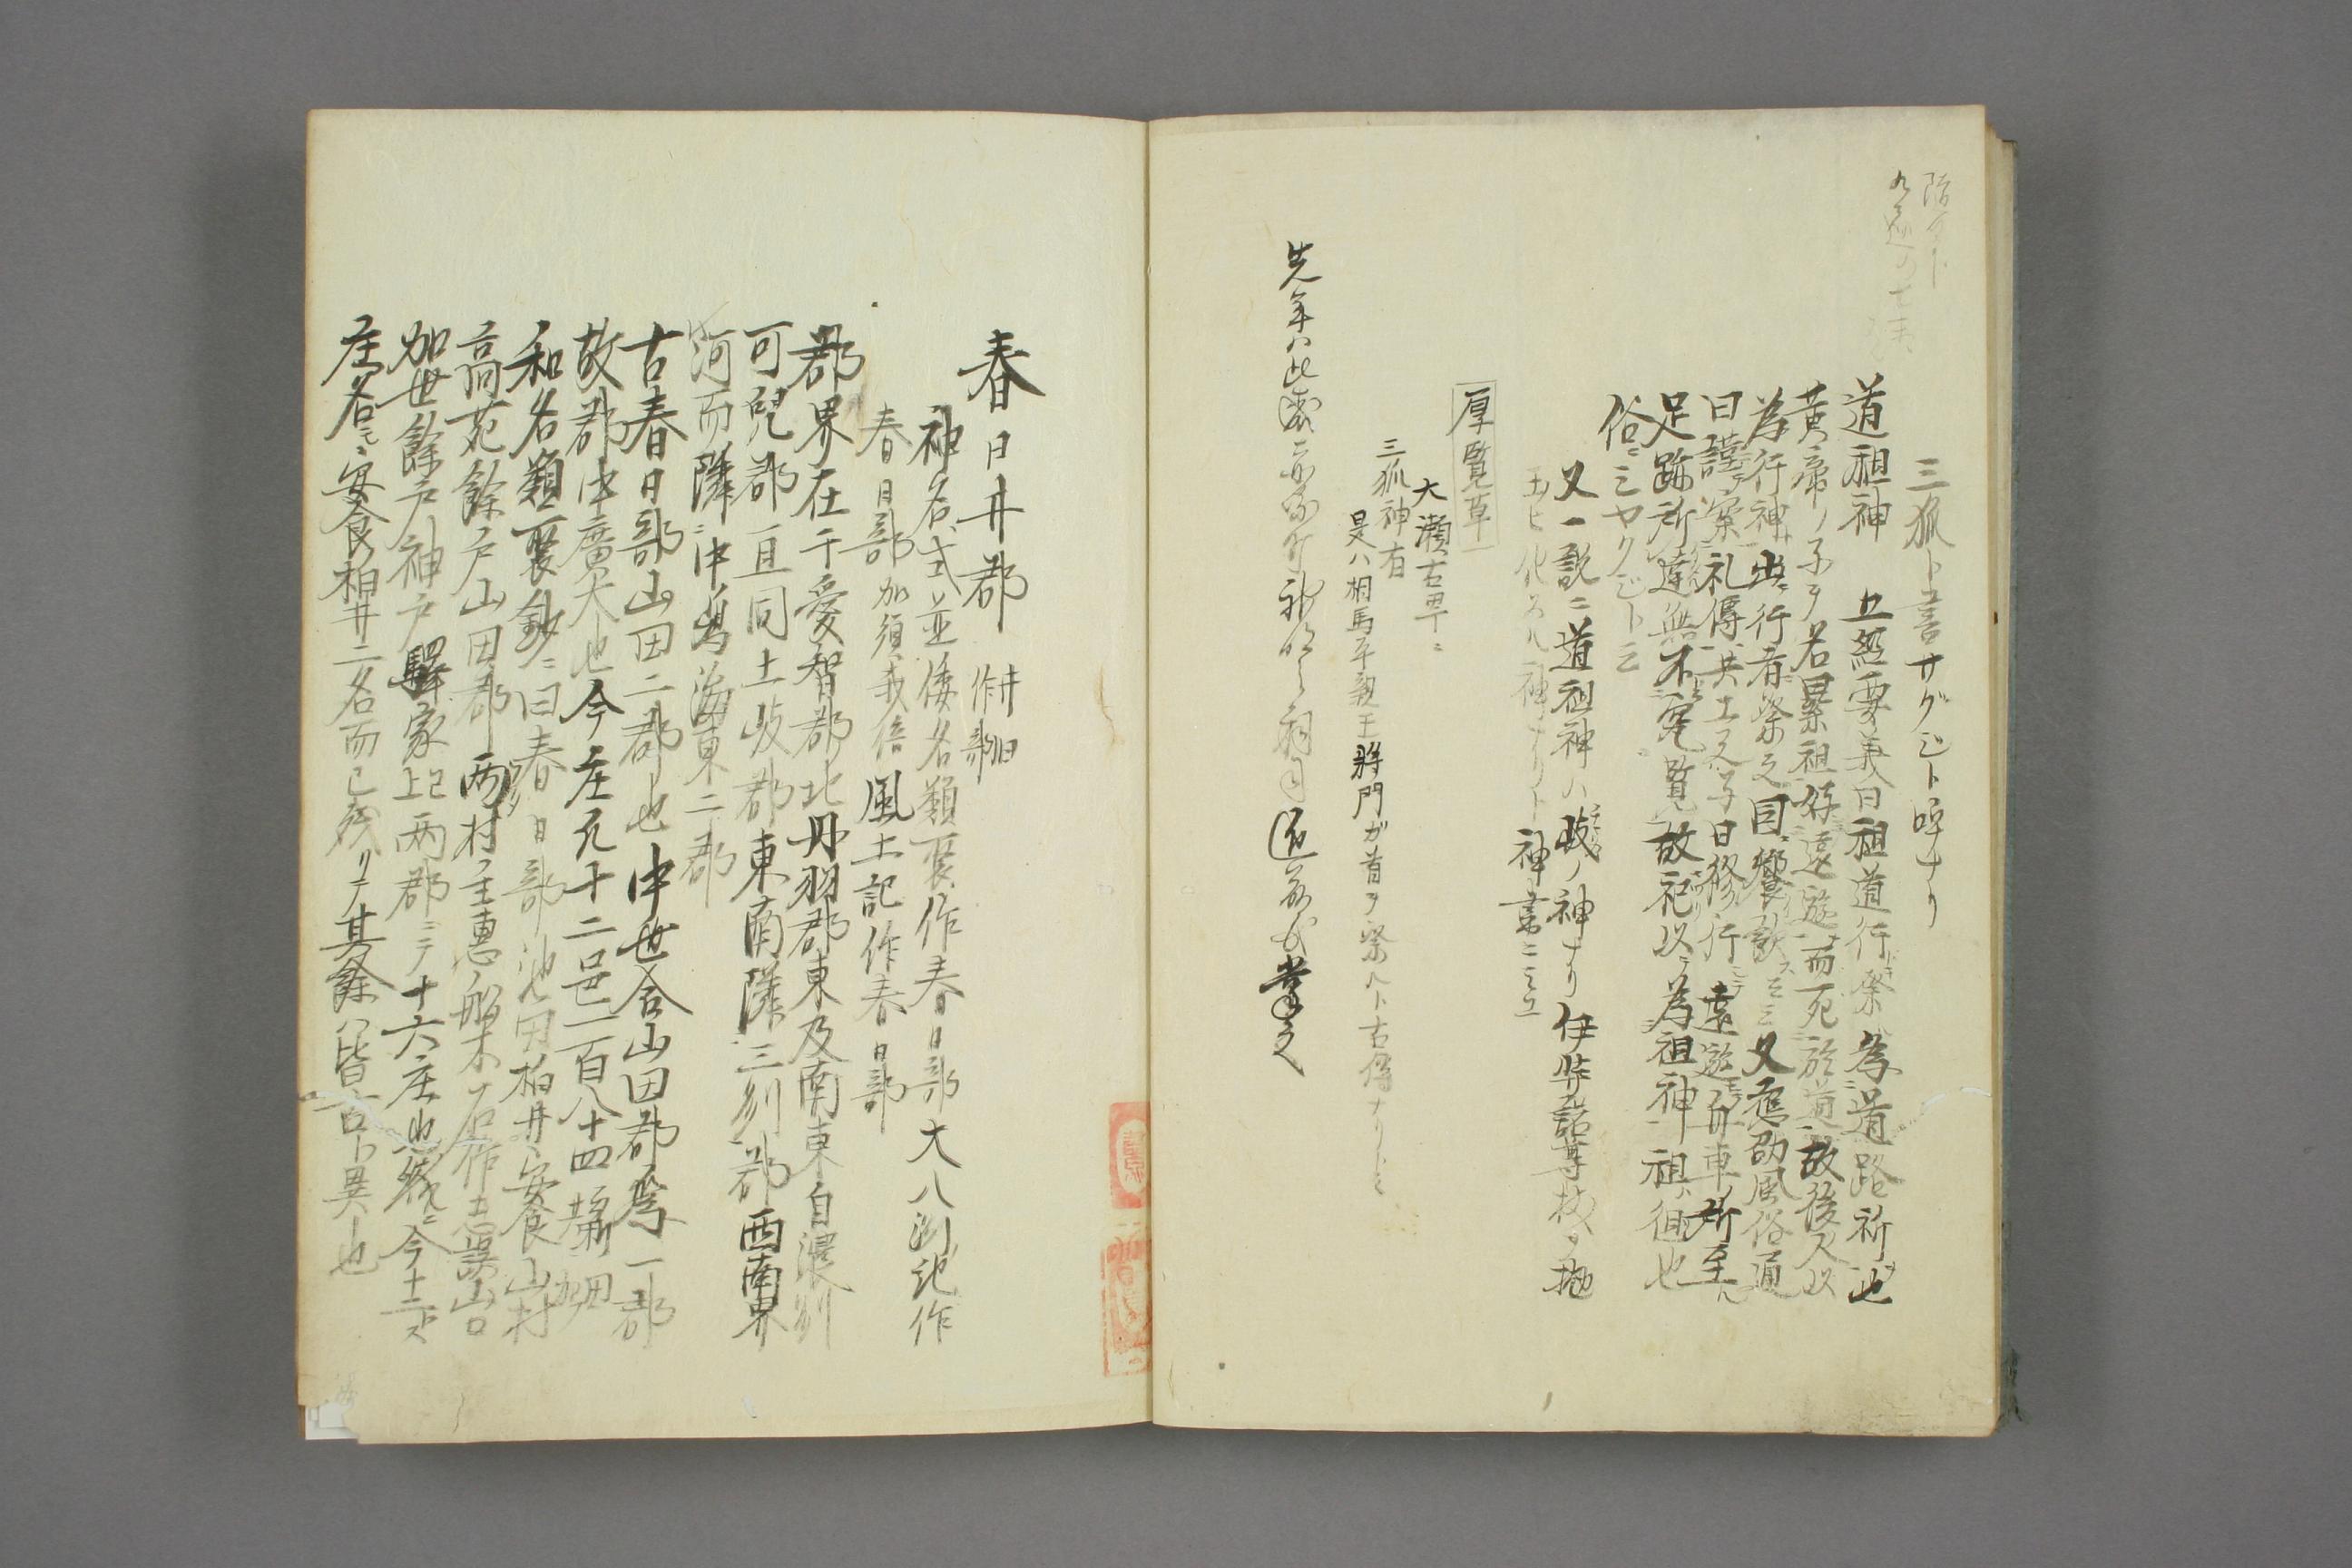 三狐ト書サグジト呼ナリ
道祖神 五経要義曰祖道行祭為道路祈也
黄帝ノ子ヲ名累祖好遠遊而死於道故後人以
為行神出行者祭之因饗飲 又應劭風俗通
曰謹案礼傳共工之子曰脩行遠遊舟車所至
足跡所達無不窮覧故祀以為祖神祖徂也
俗ニミヤクジト云
又一説ニ道祖神ハ岐ノ神ナリ伊弉諾尊杖ヲ抛
玉ヒ化スル神ナリト神書ニミユ
厚覧草
大瀬古町ニ
三狐神有
是ハ相馬平親王将門ガ首ヲ祭ルト古傳ナリト
先年ハ此
春日井郡 井旧作部
神名式並倭名類聚作春日部大八洲記作
春日部加須我倍風土記作春日部
郡界在于愛智郡北丹羽郡東及南東自濃州
可兒郡亘同土岐郡東南隣三州郡西南界
河而隣中嶌海東二郡
古春日部山田二郡也中世合山田郡為一郡
故郡中廣大也今庄凡十二邑二百八十四 新田加
和名類聚鈔ニ曰春日部池田柏井安食山村
高苑餘戸山田郡両村主恵船木石作志談山口
加世餘戸神戸驛家上記両郡ニテ十六庄也然ルニ今十二庄トス
庄名モ安食柏井二名而已残リテ其餘ハ皆古ト異也